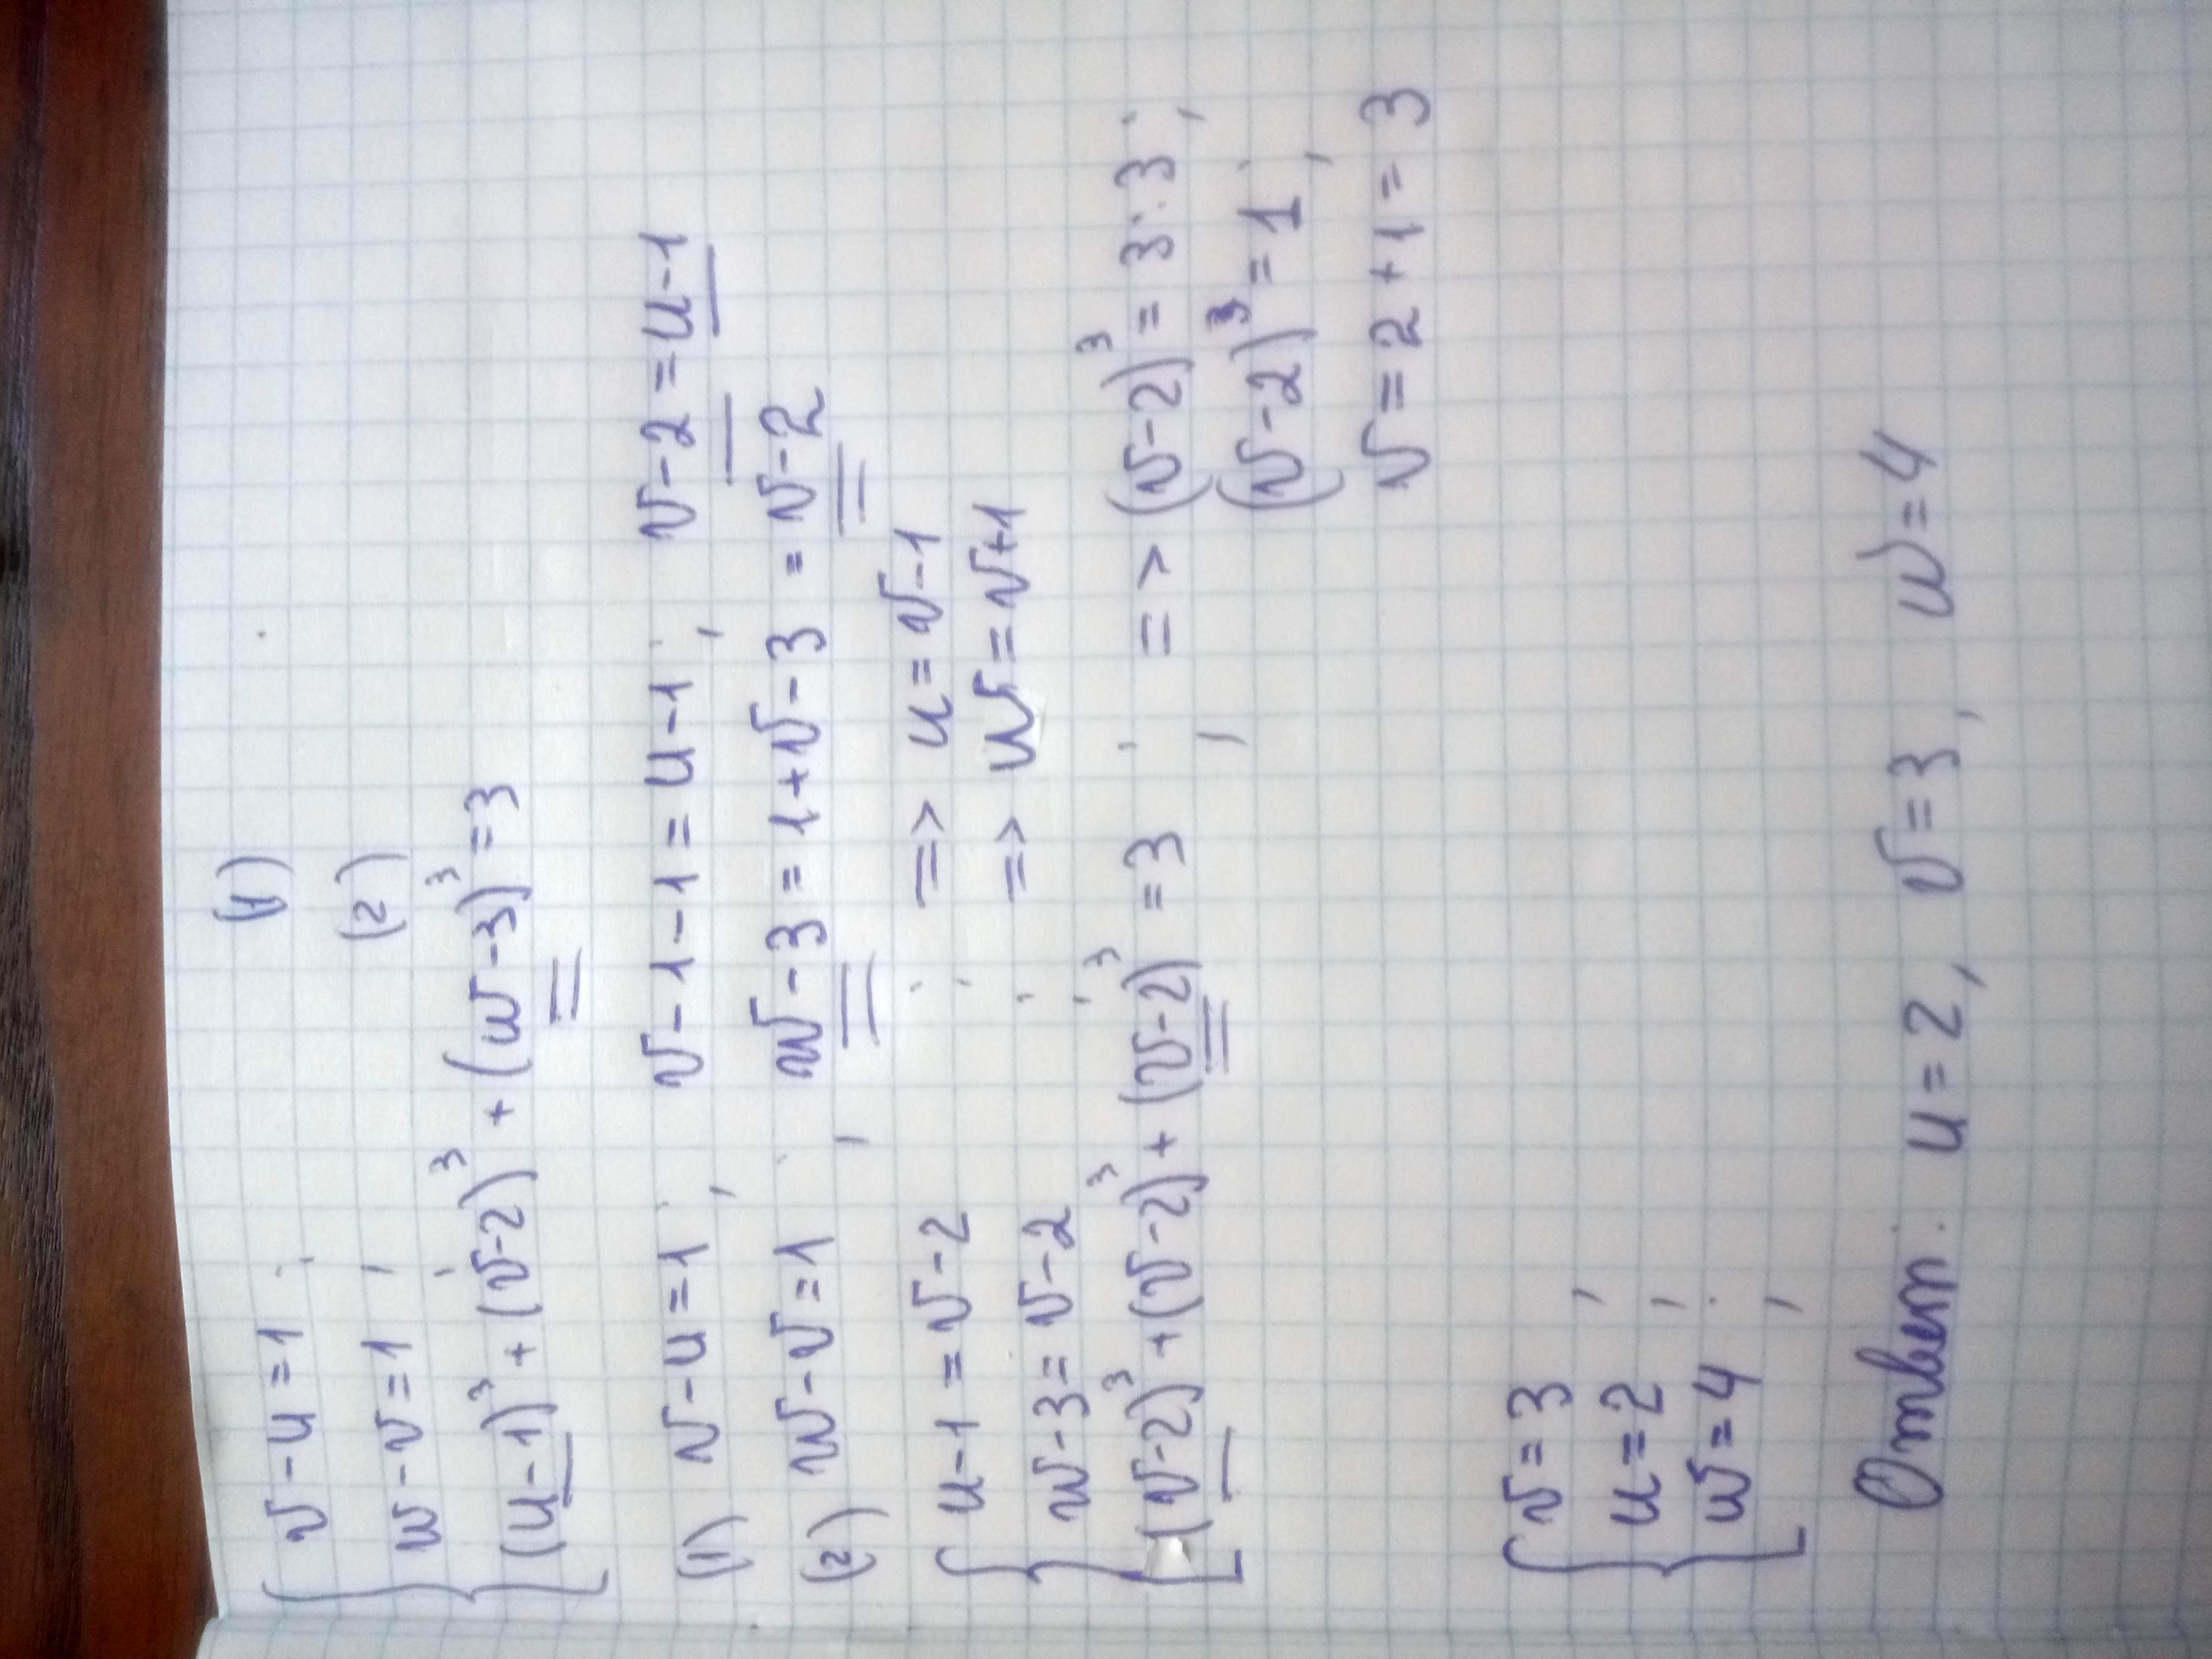 v-u=1; (1)
w-v=1; (2)
(u-1)³+(v-2)³+(w-3)³=3
(1) v-u=1; v-1-1=u-1; v-2=u-1
(2) w-v=1; w-3=1+v-3=v-2
u-1=v-2; => u=v-1
w-3=v-2; => w=v+1
(v-2)³+(v-2)³+(v-2)³=3; => (v-2)³=3:3;
(v-2)³=1;
v=2+1=3
v=3;
u=2;
w=4;
Ответ: u=2, v=3, w=4